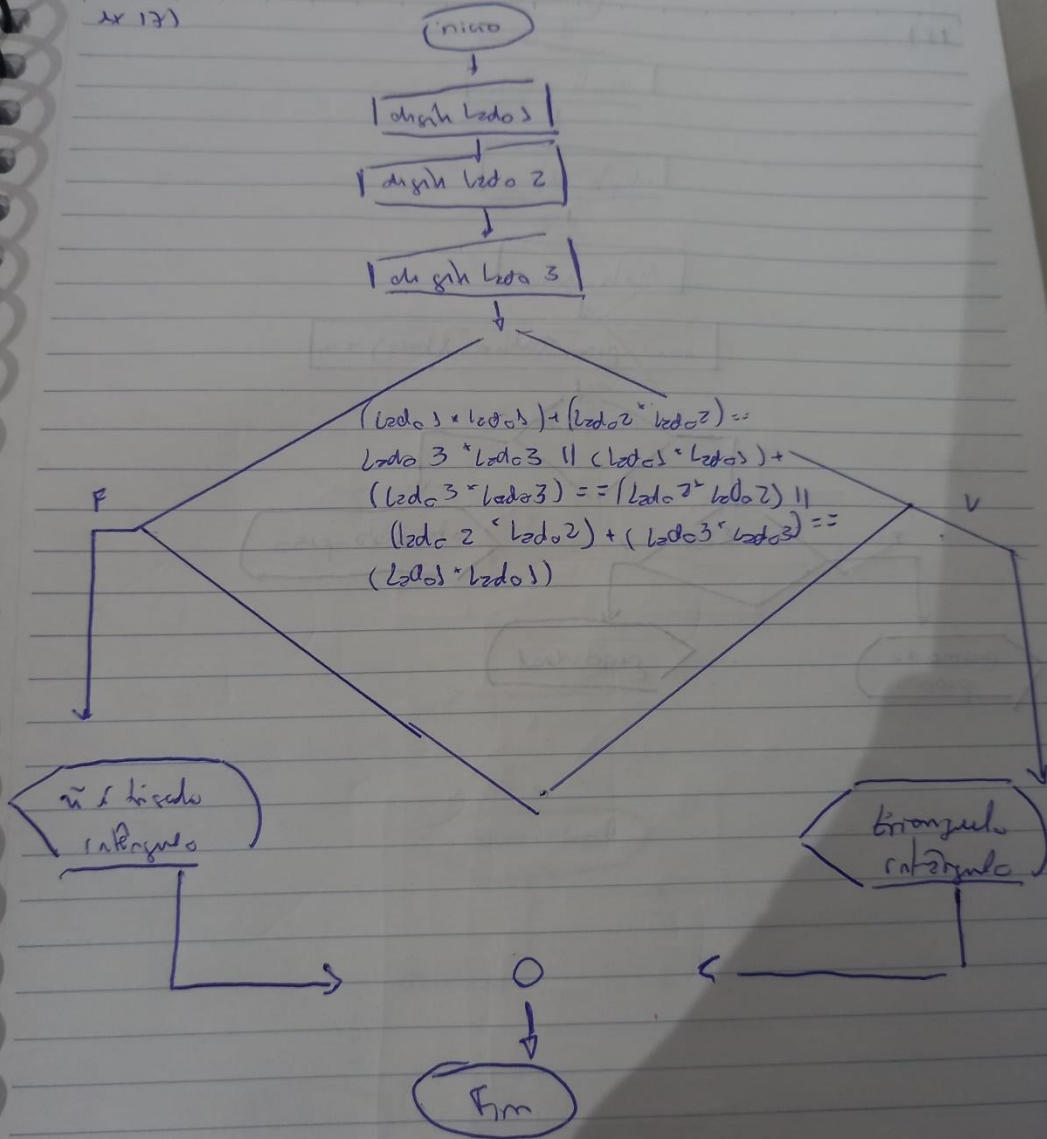 ex 17)
inicio
digite Lado 1
digite Lado 2
digite Lado 3
(Lado1 * Lado1) + (Lado2 * Lado2) ==
Lado 3 * Lado3 || (Lado1 * Lado1) +
(Lado 3 * Lado3) == (Lado 2 * Lado 2) ||
(Lado 2 * Lado2) + (Lado3 * Lado3) ==
(Lado1 * Lado1)
F
V
ñ é
triangulo
Fim